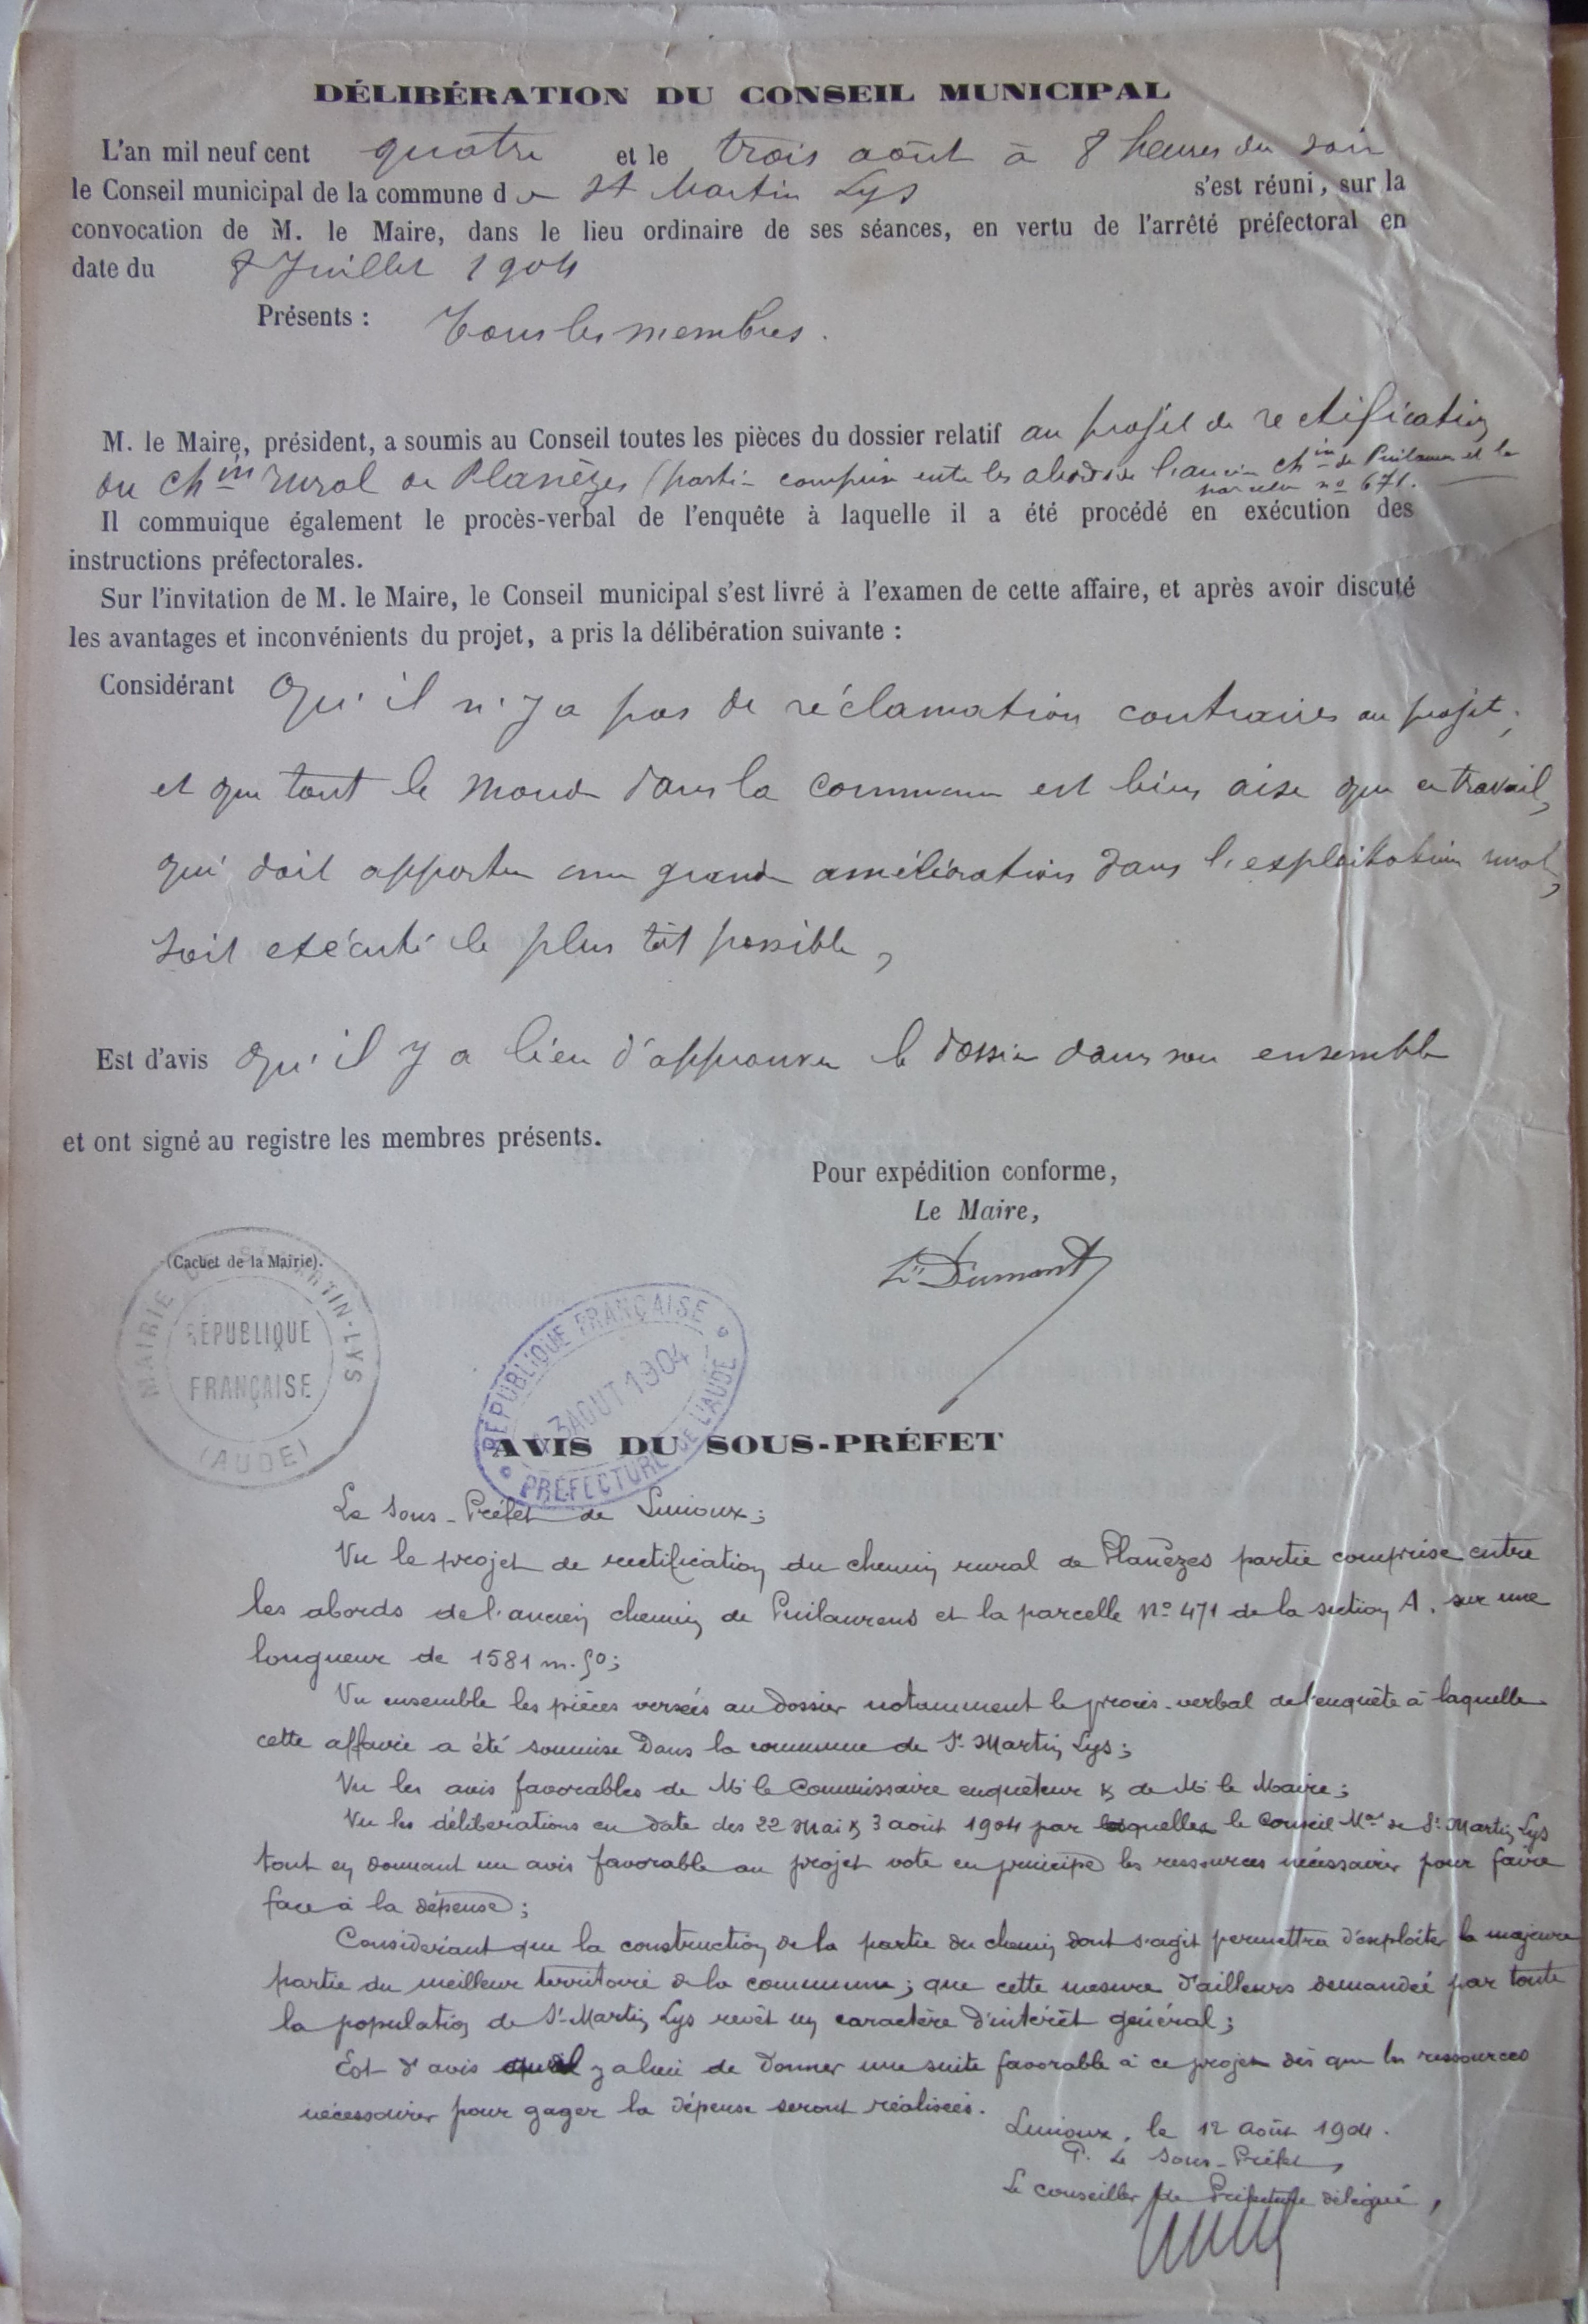 DÉLIBÉRATION DU CONSEIL MUNICIPAL
L'an mil neuf cent quatre et le trois août à 8 heures du soir
le Conseil municipal de la commune de St Martin Lys s'est réuni, sur la
convocation de M. le Maire, dans le lieu ordinaire de ses séances, en vertu de l'arrêté préfectoral en
date du 8 Juillet 1904
Présents : Tous les membres.
M. le Maire, président, a soumis au Conseil toutes les pièces du dossier relatif au projet de rectification
du chin rural de Planèzes (partie comprise entre les abords de l'ancien chin de Puilaurens et la
parcelle no 671.
Il commuique également le procès-verbal de l'enquête à laquelle il a été procédé en exécution des
instructions préfectorales.
Sur l'invitation de M. le Maire, le Conseil municipal s'est livré à l'examen de cette affaire, et après avoir discuté
les avantages et inconvénients du projet, a pris la délibération suivante :
Considérant qu'il n'y a pas de réclamation contraires au projet;
et que tout le monde dans la commune est bien aise que ce travail,
qui doit apporter une grande amélioration dans l'exploitation rurale,
soit exécuté le plus tôt possible,
Est d'avis qu'il y a lieu d'approuver le dossier dans son ensemble
et ont signé au registre les membres présents.
Pour expédition conforme,
Le Maire,
Dumont
(Cachet de la Mairie).
MAIRIE DE ST MARTIN-LYS
RÉPUBLIQUE
FRANÇAISE
(AUDE)
RÉPUBLIQUE FRANÇAISE
3 AOUT 1904
PRÉFECTURE DE L'AUDE
AVIS DU SOUS-PRÉFET
Le Sous-Préfet de Limoux;
Vu le projet de rectification du chemin rural de Planèzes partie comprise entre
les abords de l'ancien chemin de Puilaurens et la parcelle No 471 de la section A, sur une
longueur de 1581 m. 50;
Vu ensemble les pièces versées au dossier notamment le procès-verbal de l'enquête à laquelle
cette affaire a été soumise dans la commune de St Martin Lys;
Vu les avis favorables de Mr le Commissaire enquêteur & de Mr le Maire;
Vu les délibérations en date des 22 Mai & 3 août 1904 par lesquelles le Conseil Mal de St Martin Lys
tout en donnant un avis favorable au projet vote en principe les ressources nécessaires pour faire
face à la dépense;
Considérant que la construction de la partie du chemin dont s'agit permettra d'exploiter la majeure
partie du meilleur territoire de la commune; que cette mesure d'ailleurs demandée par toute
la population de St-Martin Lys revêt un caractère d'intérêt général;
Est d'avis qu'il y a lieu de donner une suite favorable à ce projet dès que les ressources
nécessaires pour gager la dépense seront réalisées.
Limoux, le 12 Août 1904.
P. Le Sous-Préfet,
Le conseiller de Préfecture délégué,